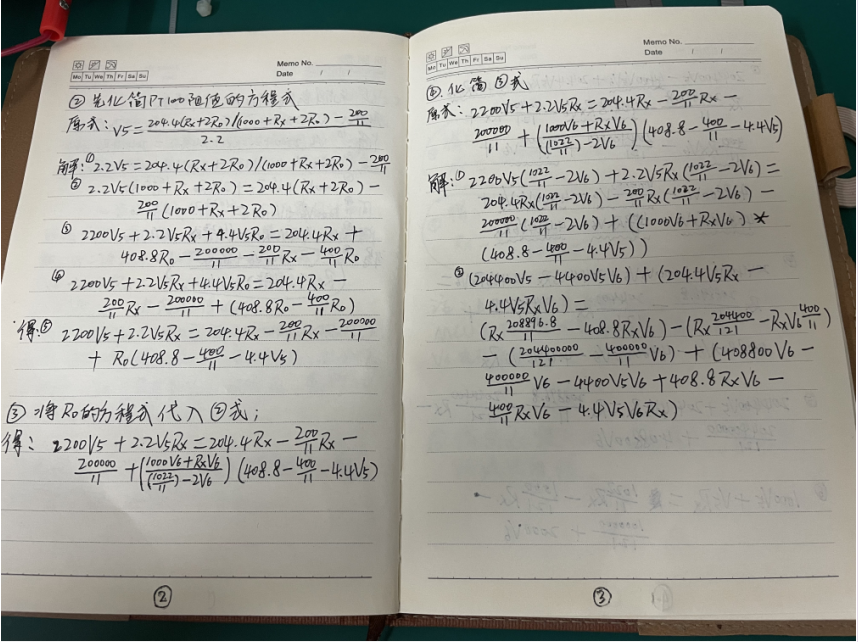 Memo No.
Mo Tu We Th Fr Sa Su
Date / /
② 先化简PT100阻值的方程式
原式: V5 = (204.4(Rx+2R0)/(1000+Rx+2R0) - 200/11) / 2.2
解: ① 2.2V5 = 204.4(Rx+2R0)/(1000+Rx+2R0) - 200/11
② 2.2V5(1000+Rx+2R0) = 204.4(Rx+2R0) -
200/11 (1000+Rx+2R0)
③ 2200V5+2.2V5Rx+4.4V5R0 = 204.4Rx +
408.8R0 - 200000/11 - 200/11 Rx - 400/11 R0
④ 2200V5+2.2V5Rx+4.4V5R0 = 204.4Rx -
200/11 Rx - 200000/11 + (408.8R0 - 400/11 R0)
得: ⑤ 2200V5+2.2V5Rx = 204.4Rx - 200/11 Rx - 200000/11
+ R0(408.8 - 400/11 - 4.4V5)
③ 将R0的方程式代入②式;
得: 2200V5+2.2V5Rx = 204.4Rx - 200/11 Rx -
200000/11 + ((1000V6+RxV6)/((1022/11)-2V6)) (408.8 - 400/11 - 4.4V5)
②
Memo No.
Mo Tu We Th Fr Sa Su
Date / /
④. 化简③式
原式: 2200V5+2.2V5Rx = 204.4Rx - 200/11 Rx -
200000/11 + ((1000V6+RxV6)/((1022/11)-2V6)) (408.8 - 400/11 - 4.4V5)
解: ① 2200V5(1022/11 - 2V6) + 2.2V5Rx(1022/11 - 2V6) =
204.4Rx(1022/11 - 2V6) - 200/11 Rx(1022/11 - 2V6) -
200000/11 (1022/11 - 2V6) + ((1000V6+RxV6) *
(408.8 - 400/11 - 4.4V5))
② (204400V5 - 4400V5V6) + (204.4V5Rx -
4.4V5RxV6) =
(Rx 208896.8/11 - 408.8RxV6) - (Rx 204400/121 - RxV6 400/11)
- (204400000/121 - 400000/11 V6) + (408800V6 -
400000/11 V6 - 4400V5V6 + 408.8RxV6 -
400/11 RxV6 - 4.4V5V6Rx)
③